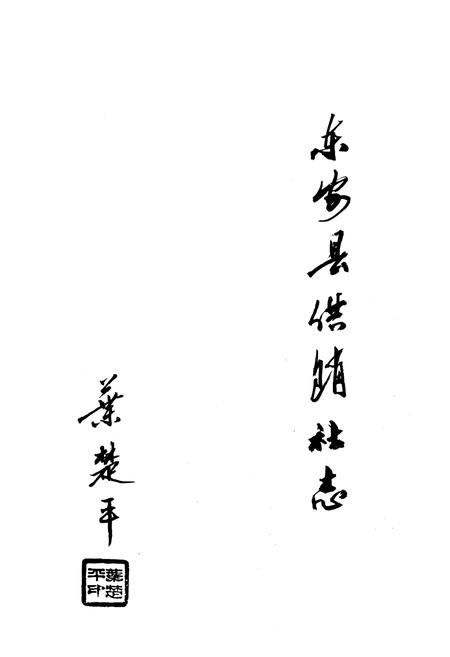 东安县供销社志
葉楚平
葉楚
平印